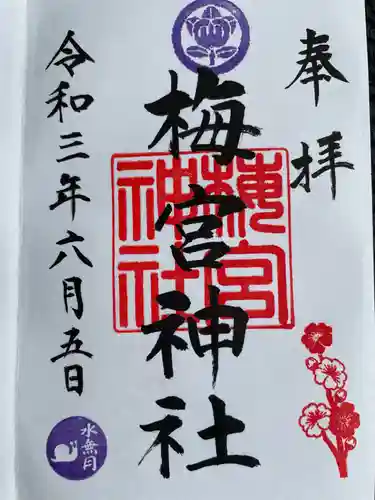 奉拝
梅宮神社
梅宮
神社
令和三年六月五日
水無月